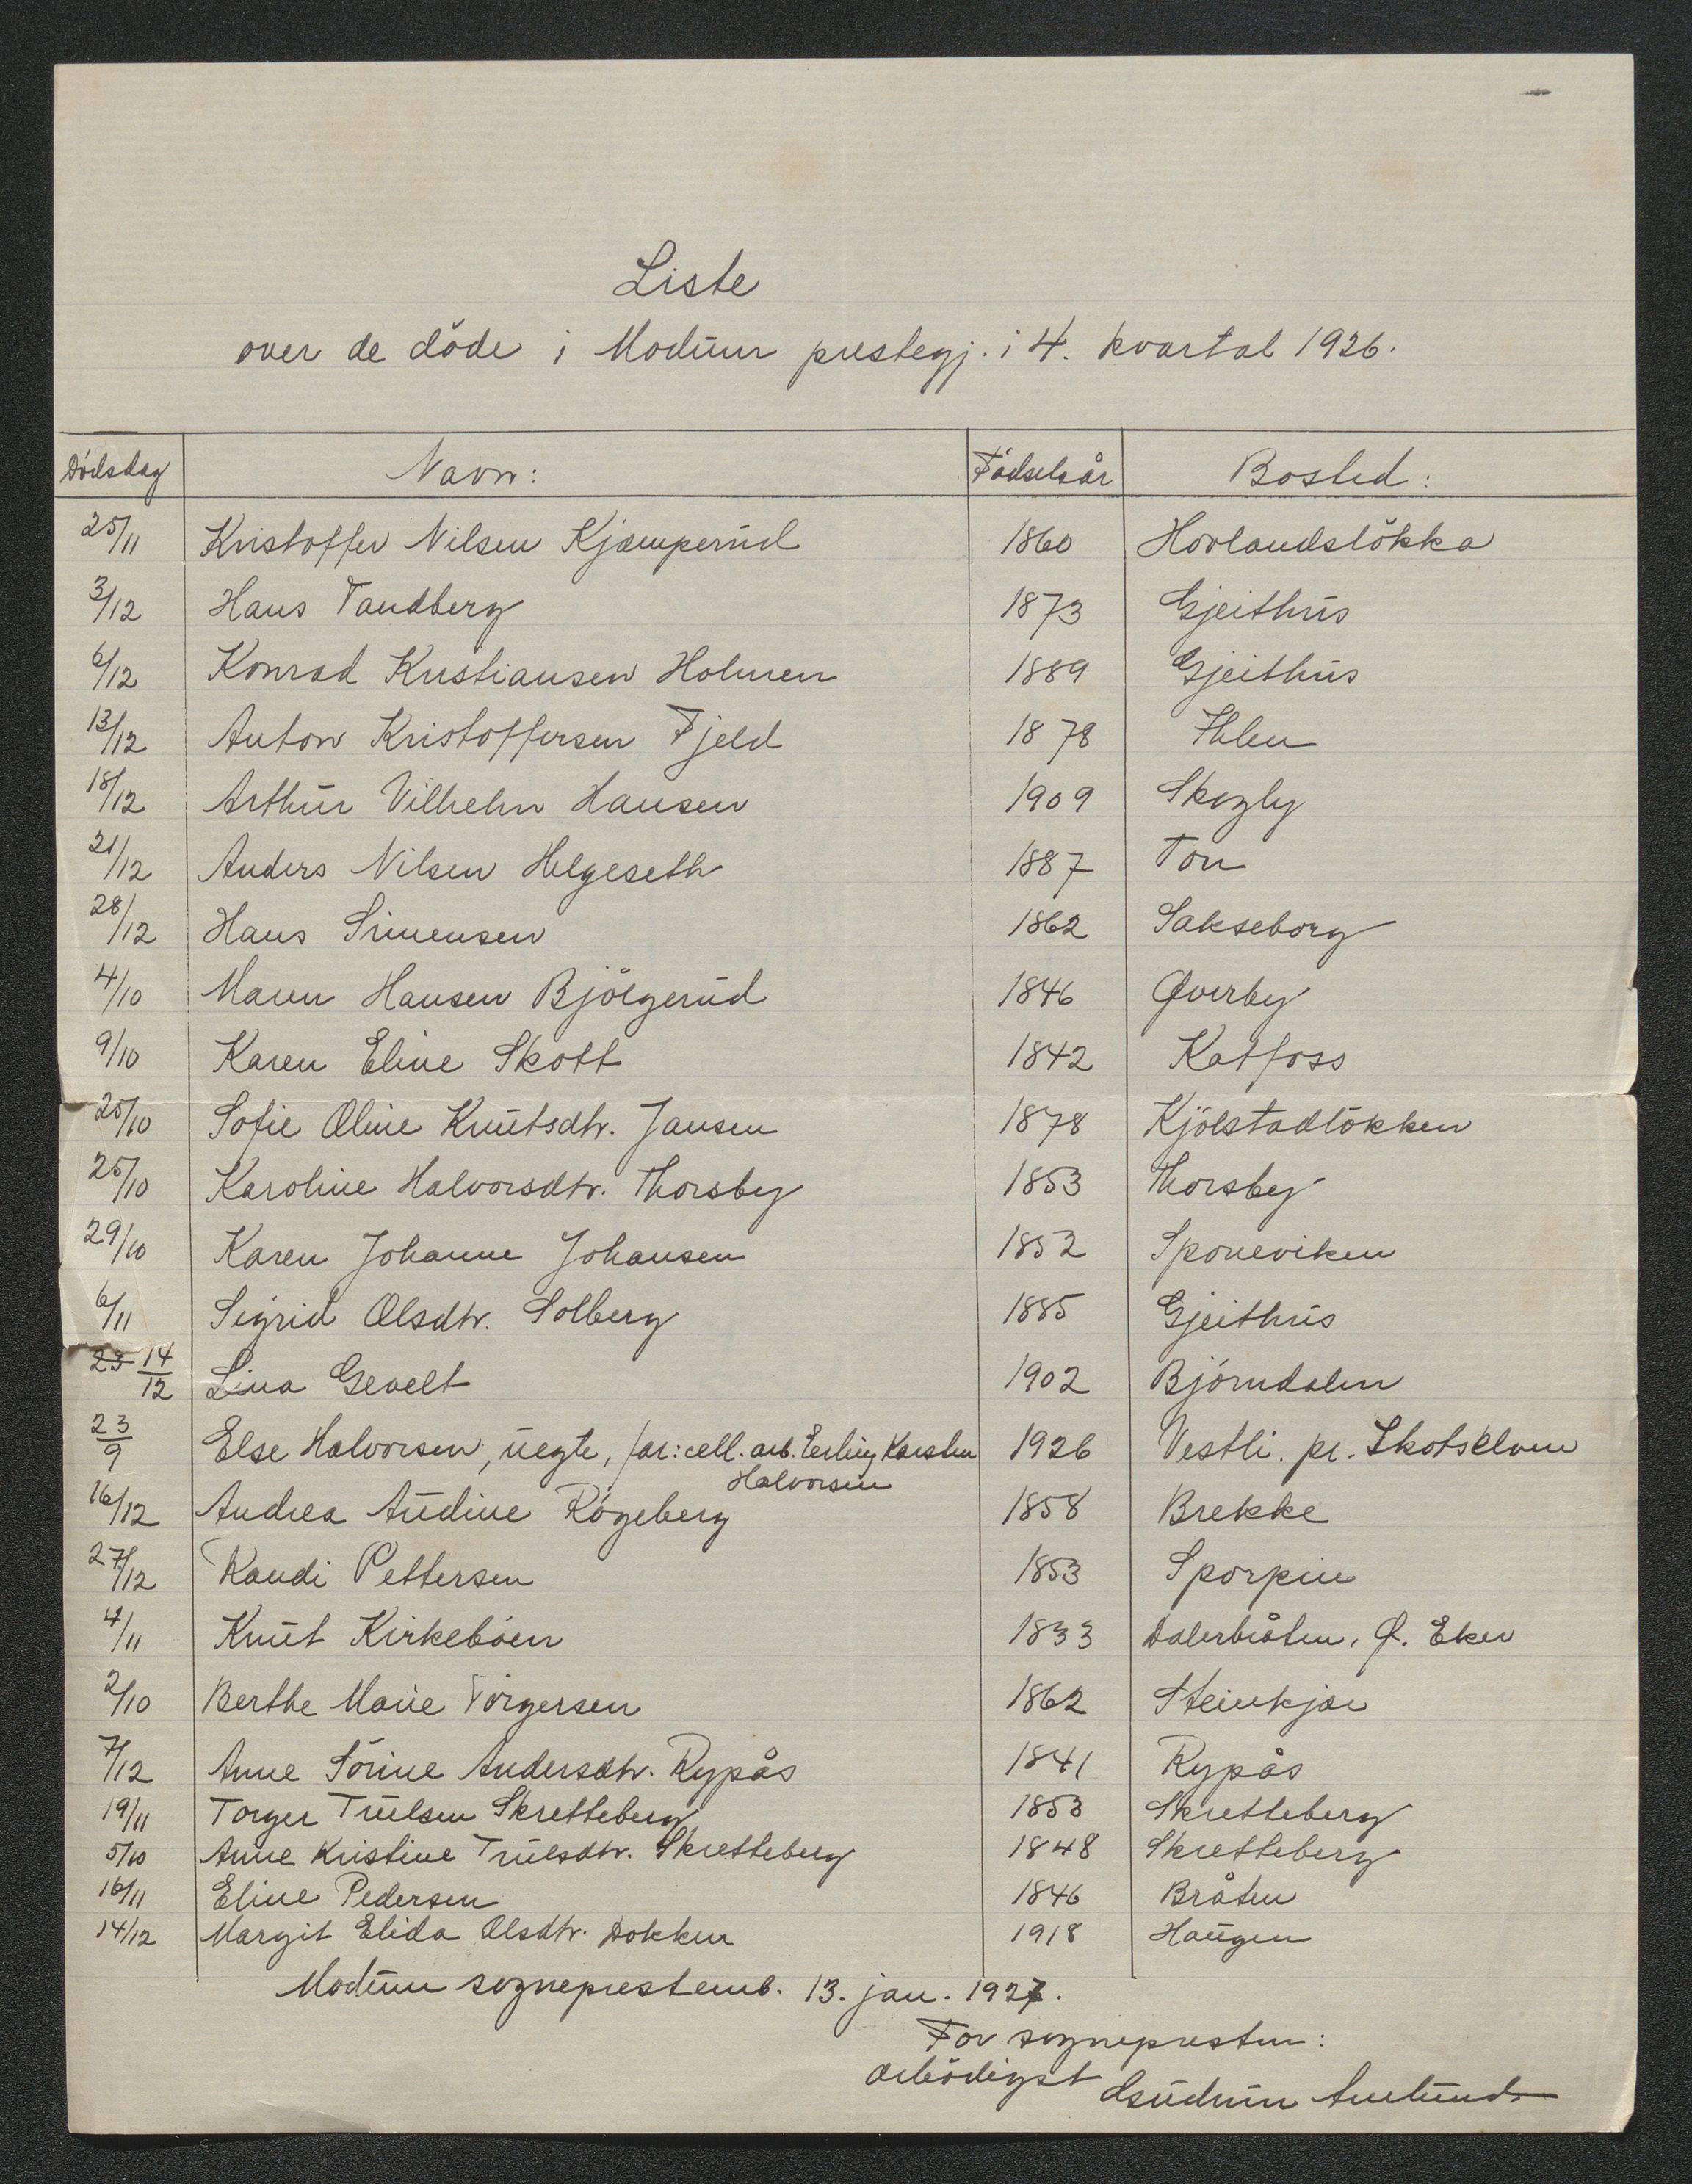 Liste
over de døde i Modum prestegj. i 4. kvartal 1926.
Dødsdag Navn: Fødselsår Bosted:
25/11 Kristoffer Nilsen Kjæmperud 1860 Hovlandsløkka
3/12 Hans Tandberg 1873 Gjeithus
6/12 Konrad Kristiansen Holmen 1889 Gjeithus
13/12 Anton Kristoffersen Fjeld 1878 Ihlen
18/12 Arthur Vilhelm Hansen 1909 Skogly
21/12 Anders Nilsen Helgeseth 1887 Ton
28/12 Hans Simensen 1862 Sakseborg
4/10 Maren Hansen Bjølgerud 1846 Øverby
9/10 Karen Eline Skott 1842 Katfoss
25/10 Sofie Oline Knutsdtr. Jansen 1878 Kjølstadløkken
25/10 Karoline Halvorsdtr. Thorsby 1853 Thorsby
29/10 Karen Johanne Johansen 1852 Sponeviken
6/11 Sigrid Olsdtr. Solberg 1885 Gjeithus
23 14/12 Lina Gevelt 1902 Bjørndalen
23/9 Else Halvorsen, uegte, far: cell. arb. Erling Karsten 1926 Vestli. pr. Skotselven
Halvorsen
16/12 Andrea Audine Røgeberg 1858 Brekke
27/12 Randi Pettersen 1853 Sporpin
4/11 Knut Kirkebøen 1833 Dalerbråten, Ø. Eker
2/10 Berthe Marie Torgersen 1862 Steinkjær
7/12 Anne Sørine Andersdtr. Rypås 1841 Rypås
19/11 Torger Truelsen Skretteberg 1853 Skretteberg
5/10 Anne Kristine Truelsdtr. Skretteberg 1848 Skretteberg
16/11 Eline Pedersen 1846 Bråten
14/12 Margit Elida Olsdtr. Dokken 1918 Haugen
Modum sogneprestemb. 13. jan. 1927.
For sognepresten:
ærbødigst